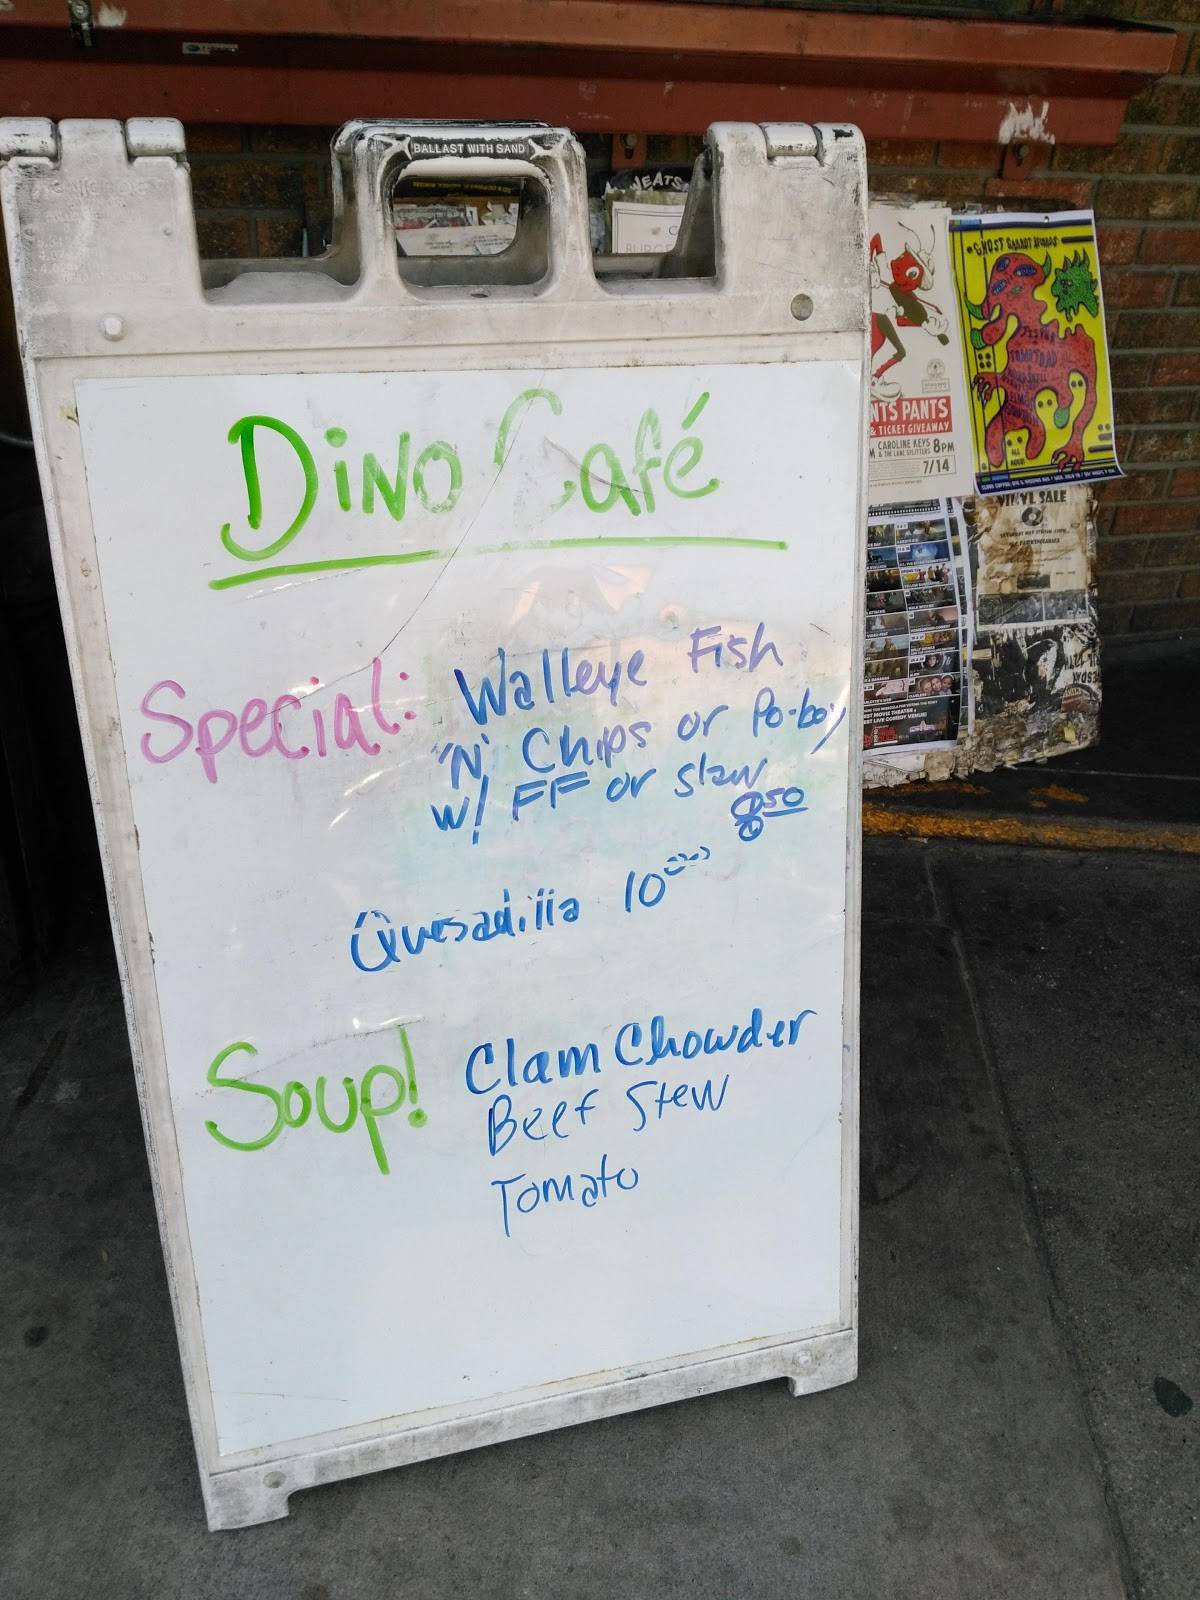 BALLAST WITH SAND
Dino Café
Special: Walleye Fish
'N' Chips or Po-boy
w/ FF or slaw
8.50
Quesadilla 10
Soup! Clam Chowder
Beef Stew
Tomato
NTS PANTS
& TICKET GIVEAWAY
CAROLINE KEYS 8PM
& THE LANE SPLITTERS
7/14
VINYL SALE